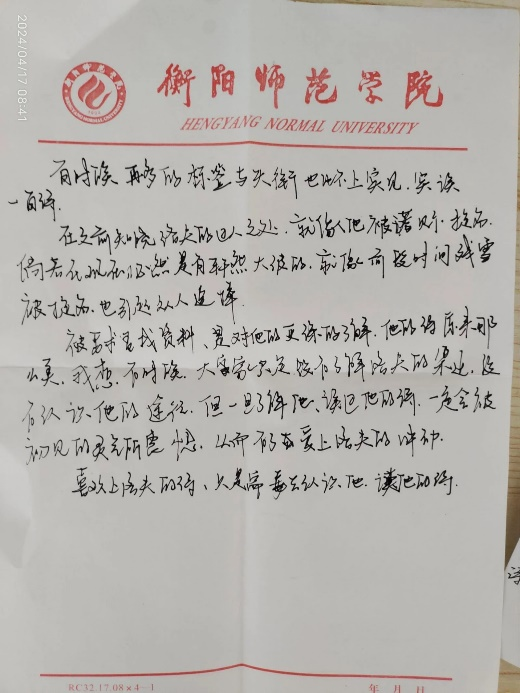 2024/04/17 08:41
衡阳师范学院
HENGYANG NORMAL UNIVERSITY
有时候 再多的标签与头衔也比不上实见、实读
一首诗.
在之前知晓洛夫的过人之处.就像他被诺贝尔提名.
倘若在现在必然是有轩然大波的.就像前段时间残雪
被提名.也引起众人
被要求寻找资料、是对他的更深的了解.他的诗原来那
么美.我想.有时候.大家只是没有了解洛夫的渠道.没
有认识他的途径.但一旦了解他、读过他的诗.一定会被
初见的灵光所震惊.从而有爱上洛夫的冲动.
喜欢上洛夫的诗、只是需要去认识他.读他的诗.
RC32.17.08×4-1
年 月 日